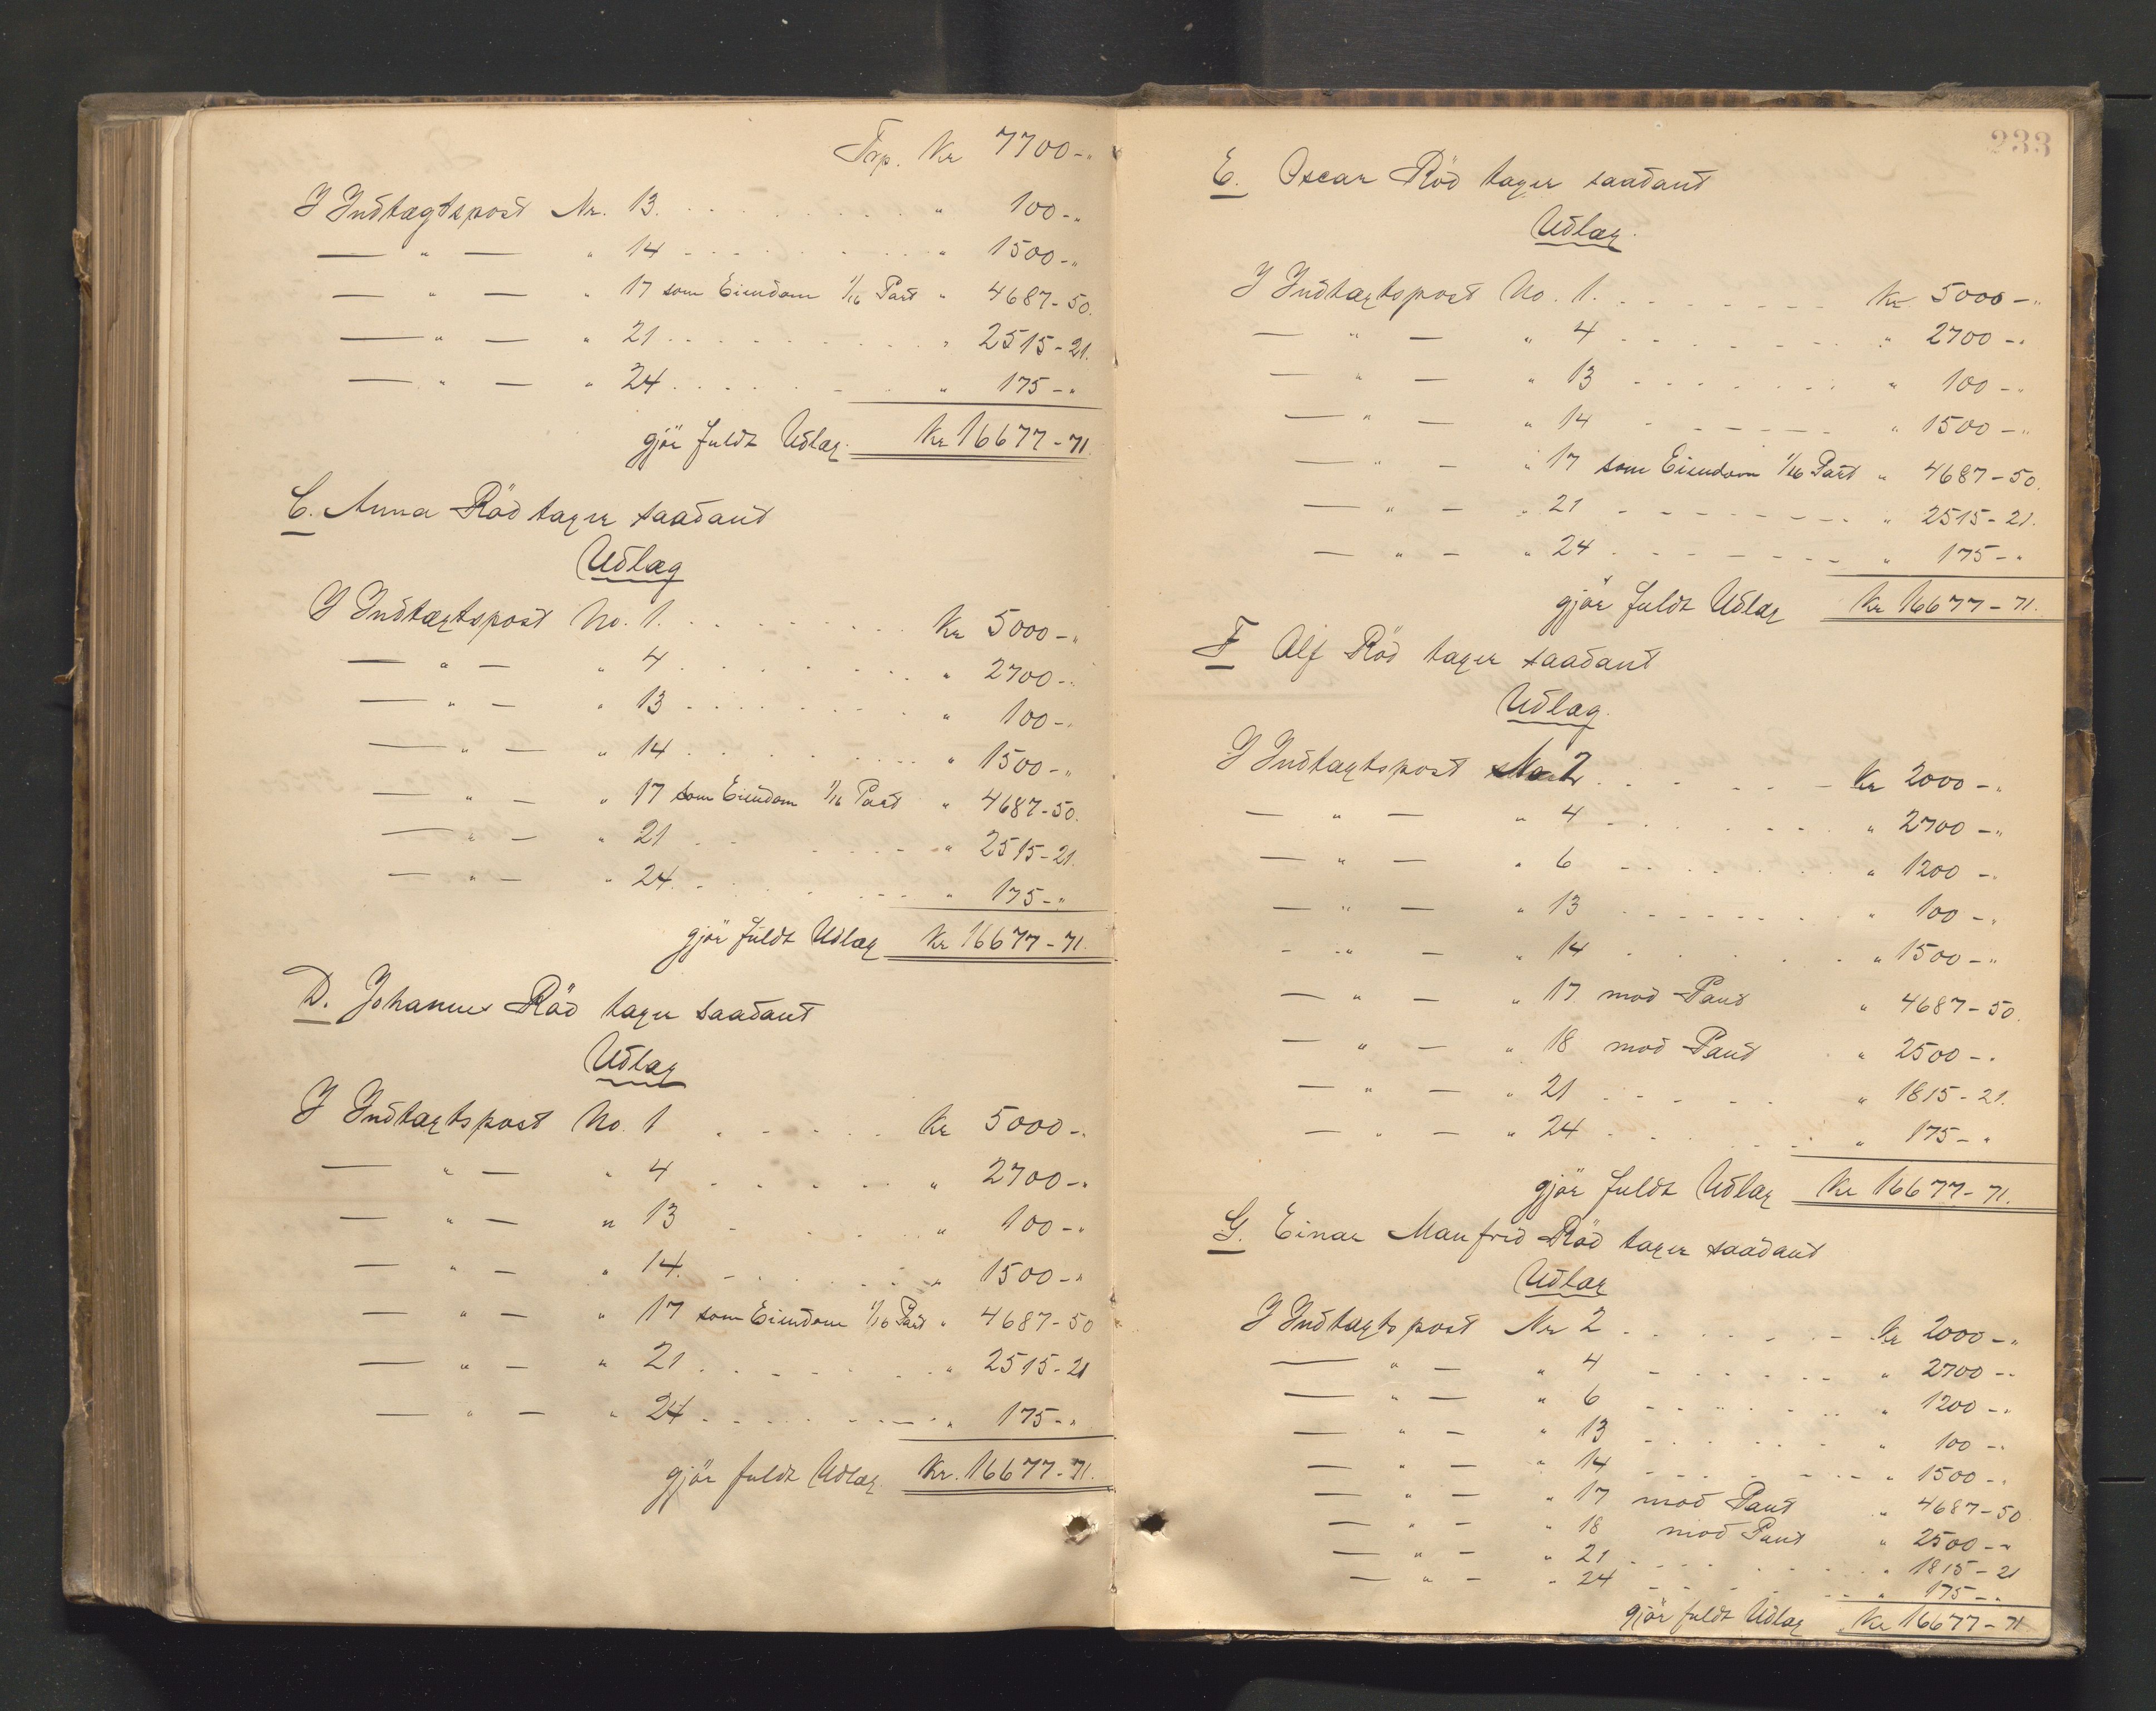 Trp. Kr 7700-"
I Indtægtspost Nr. 13. . . . . . . . . . . " 100-"
— " — " 14 - - . . . . . . . " 1500-"
— " — " 17 som Eiendom 1/16 Part " 4687-50.
— " — " 21 . . . . . . . . . . " 2515-21.
— " — " 24 . . . . . . . . " 175-"
gjör fuldt Udlæg. Kr 16677-71.
C. Anna Röd tager saadant
Udlæg
I Indtægtspost No. 1. . . . . . . . . . Kr 5000-"
— " — " 4 . . . . . . . . " 2700-"
— " — " 13 . . . . . . . . " 100-"
— " — " 14 . . . . . . . . " 1500-"
— " — " 17 som Eiendom 1/16 Part " 4687-50.
— " — " 21 . . . . . . . " 2515-21.
— " — " 24. . . . . . . . " 175-"
gjör fuldt Udlæg Kr 16677-71.
D. Johannes Röd tager saadant
Udlæg
I Indtægtspost No. 1 . . . . . Kr 5000-"
— " — " 4 . . . . . . " 2700-"
— " — " 13 . . . . . " 100-"
— " — " 14. . . . . . . " 1500-"
— " — " 17 som Eiendom 1/16 Part " 4687-50
— " — " 21 . . . . . . . " 2515-21
— " — " 24 . . . . . . . . " 175-"
gjör fuldt Udlæg. Kr. 16677-71.
233
E. Oscar Röd tager saadant
Udlæg.
I Indtægtspost No. 1. . . . . . . . Kr. 5000-"
— " — " 4 . . . . . . . . " 2700-"
— " — " 13 . . . . . . . " 100-"
— " — " 14 . . . . . . " 1500-"
— " — " 17 som Eiendom 1/16 Part " 4687-50.
— " — " 21 . . . . . . . . " 2515-21.
— " — " 24 . . . . . . . " 175-"
gjör fuldt Udlæg Kr 16677-71.
F Alf Röd tager saadant
Udlæg.
I Indtægtspost No 2 . . . . . . Kr 2000-"
— " — " 4 . . . . . . . " 2700-"
— " — " 6 . . . . . . . " 1200-"
— " — " 13 . . . . . . . " 100-"
- " — " 14 . . . . . . " 1500-"
— " — " 17 mod Pant " 4687-50.
— " — " 18 mod Pant " 2500-"
— " — " 21 . . . . . " 1815-21.
— " — " 24 . . . . . . " 175-"
gjör fuldt Udlæg Kr 16677-71.
G. Einar Manfred Röd tager saadant
Udlæg
I Indtægtspost Nr 2 . . . . . . . Kr 2000-"
— " — " 4 . . . . . . . " 2700-"
— " — " 6 . . . . . . . " 1200-"
— " — " 13 . . . . . . . " 100-"
— " — " 14 . . . . . . . " 1500-"
— " — " 17 mod Pant " 4687-50
— " — " 18 mod Pant " 2500-"
— " — " 21 . . . . . . . " 1815-21
— " — " 24 . . . . . . " 175-"
gjör fuldt Udlæg Kr 16677-71